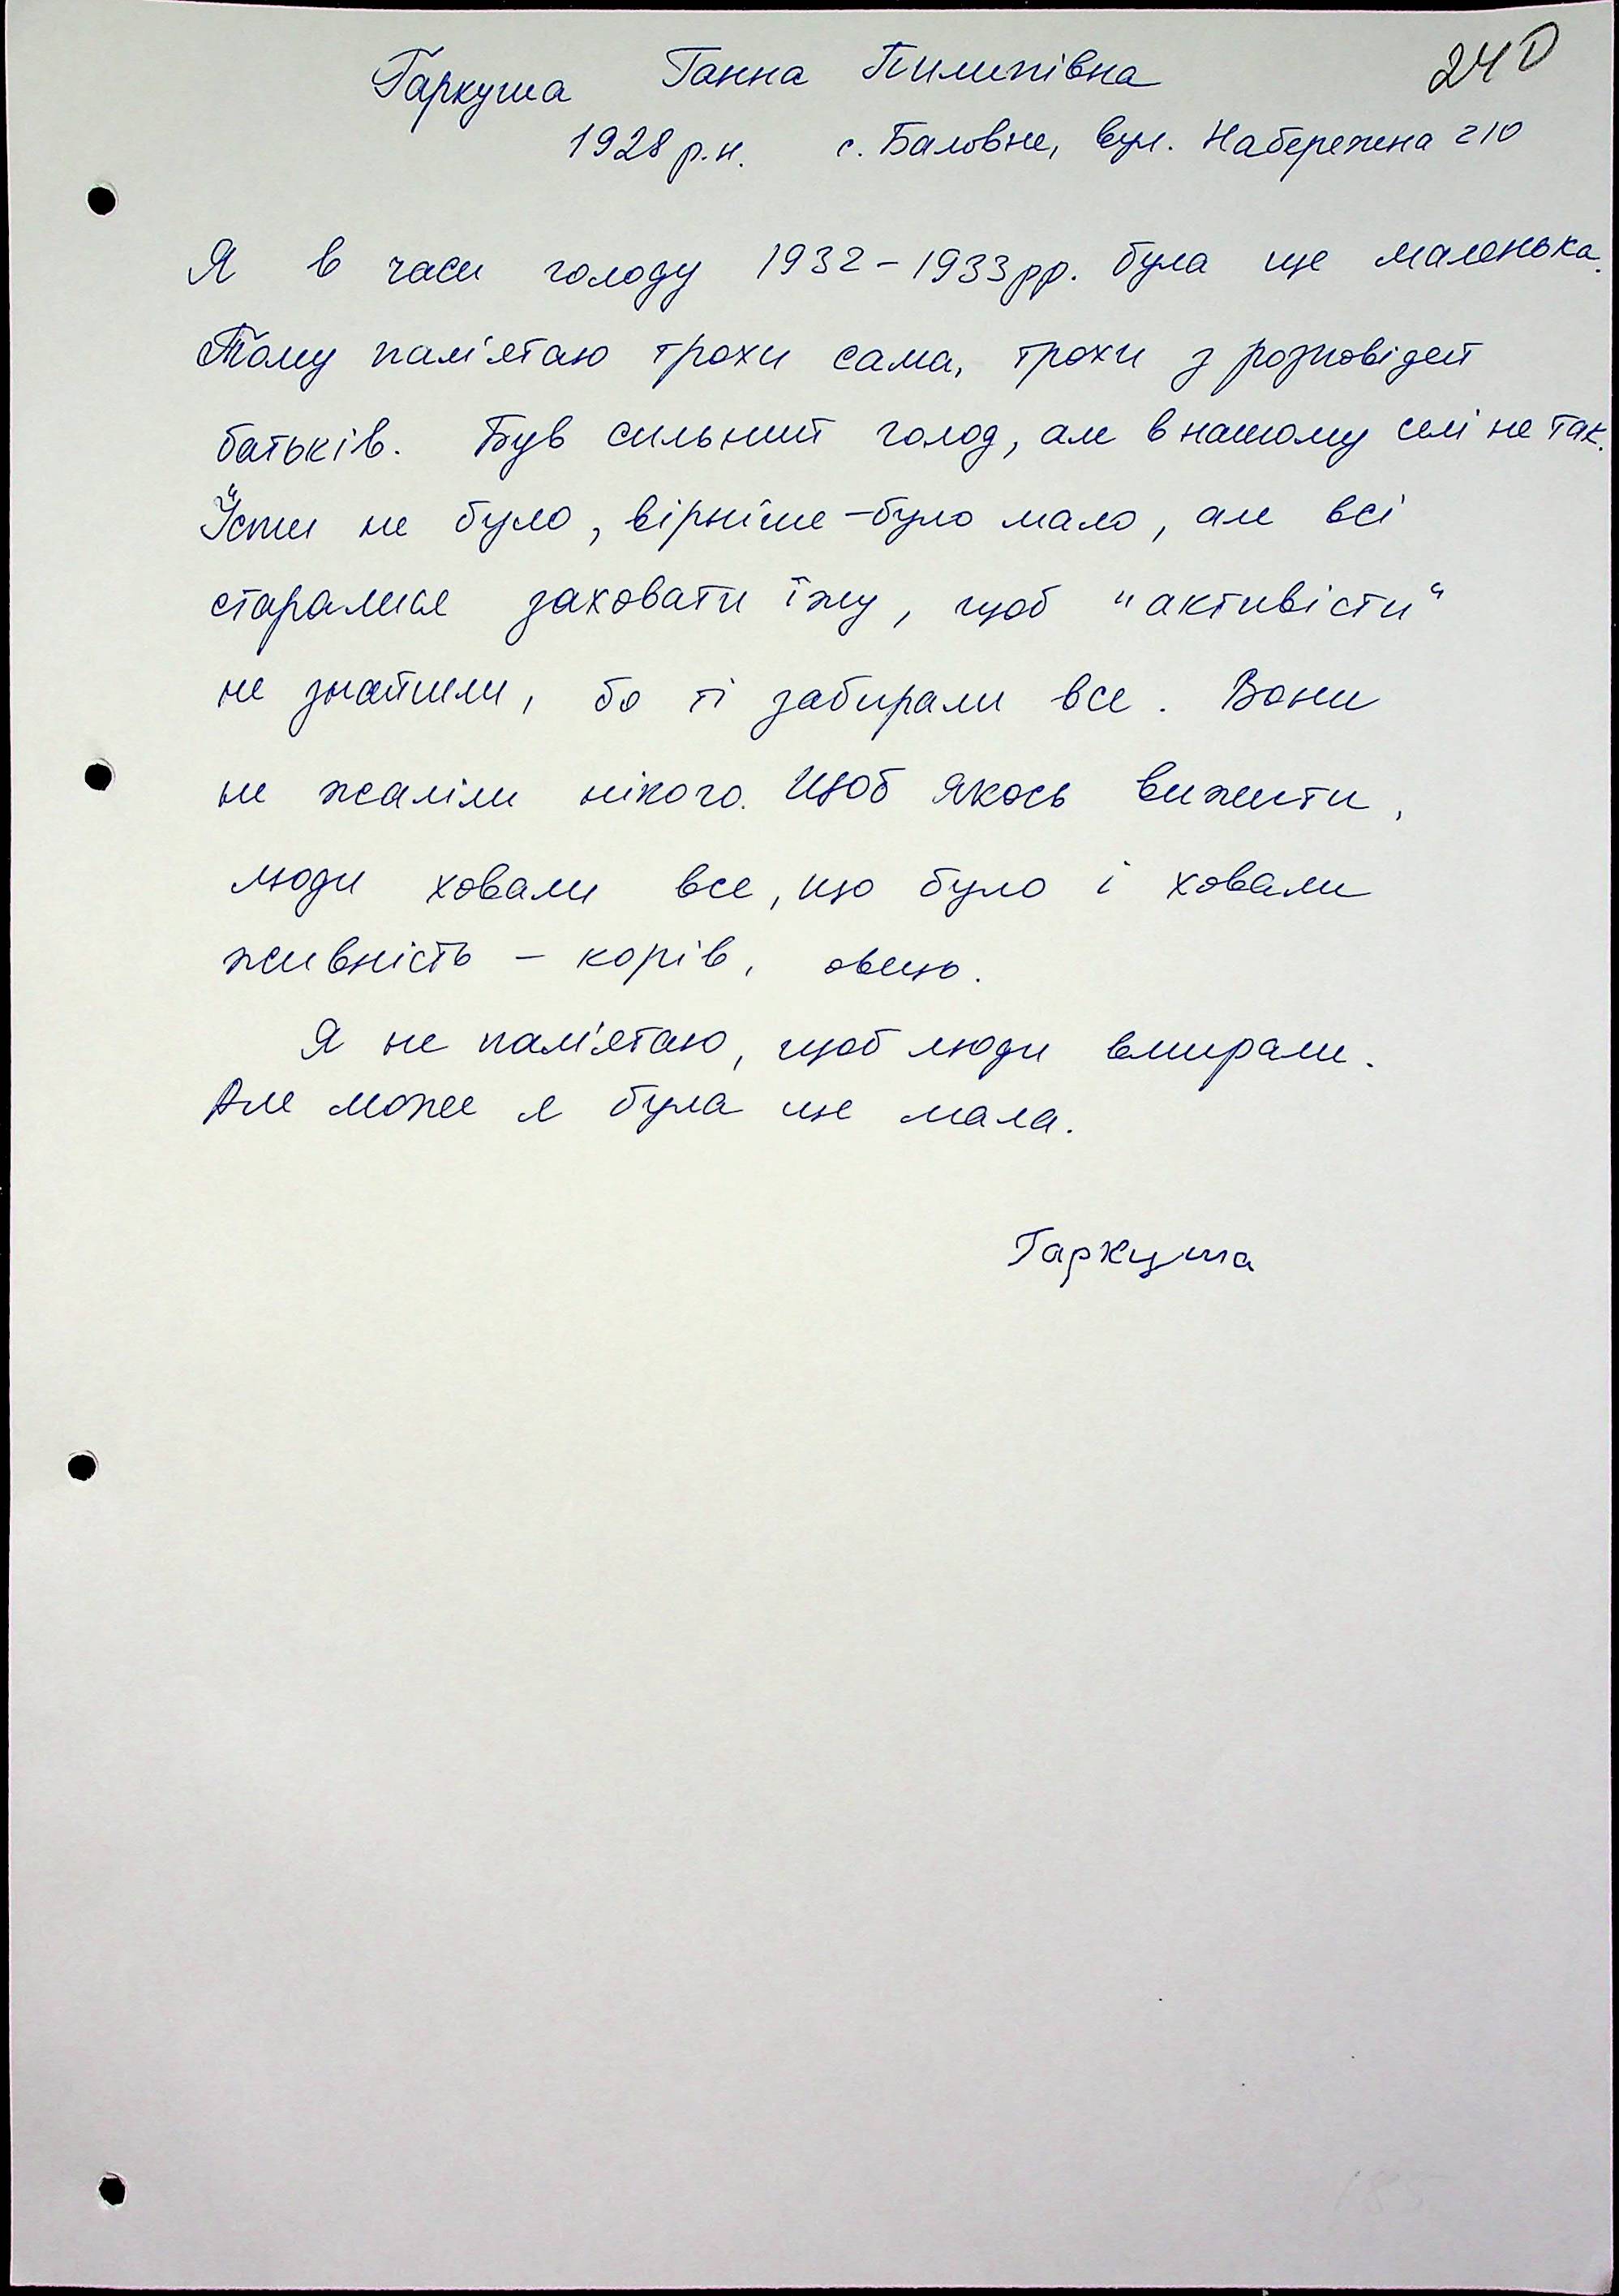 240
Гаркуша Ганна Пилипівна
1928 р.н. с. Баловне, вул. Набережна 210
Я в часи голоду 1932-1933рр. була ще маленька.
Тому пам'ятаю трохи сама, трохи з розповідей
батьків. Був сильний голод, але в нашому селі не так.
Їсти не було, вірніше - було мало, але всі
старалися заховати їжу, щоб "активісти"
не знайшли, бо ті забирали все. Вони
не жаліли нікого. Щоб якось вижити,
люди ховали все, що було і ховали
живність - корів, овець.
Я не пам'ятаю, щоб люди вмирали.
Але може я була ще мала.
Гаркуша